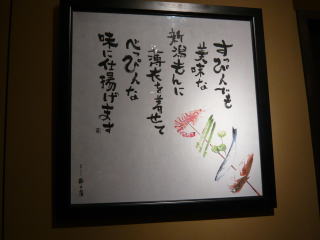 すっぴんでも
美味な
新潟もんに
薄衣を着せて
べっぴんな
味に仕揚げます